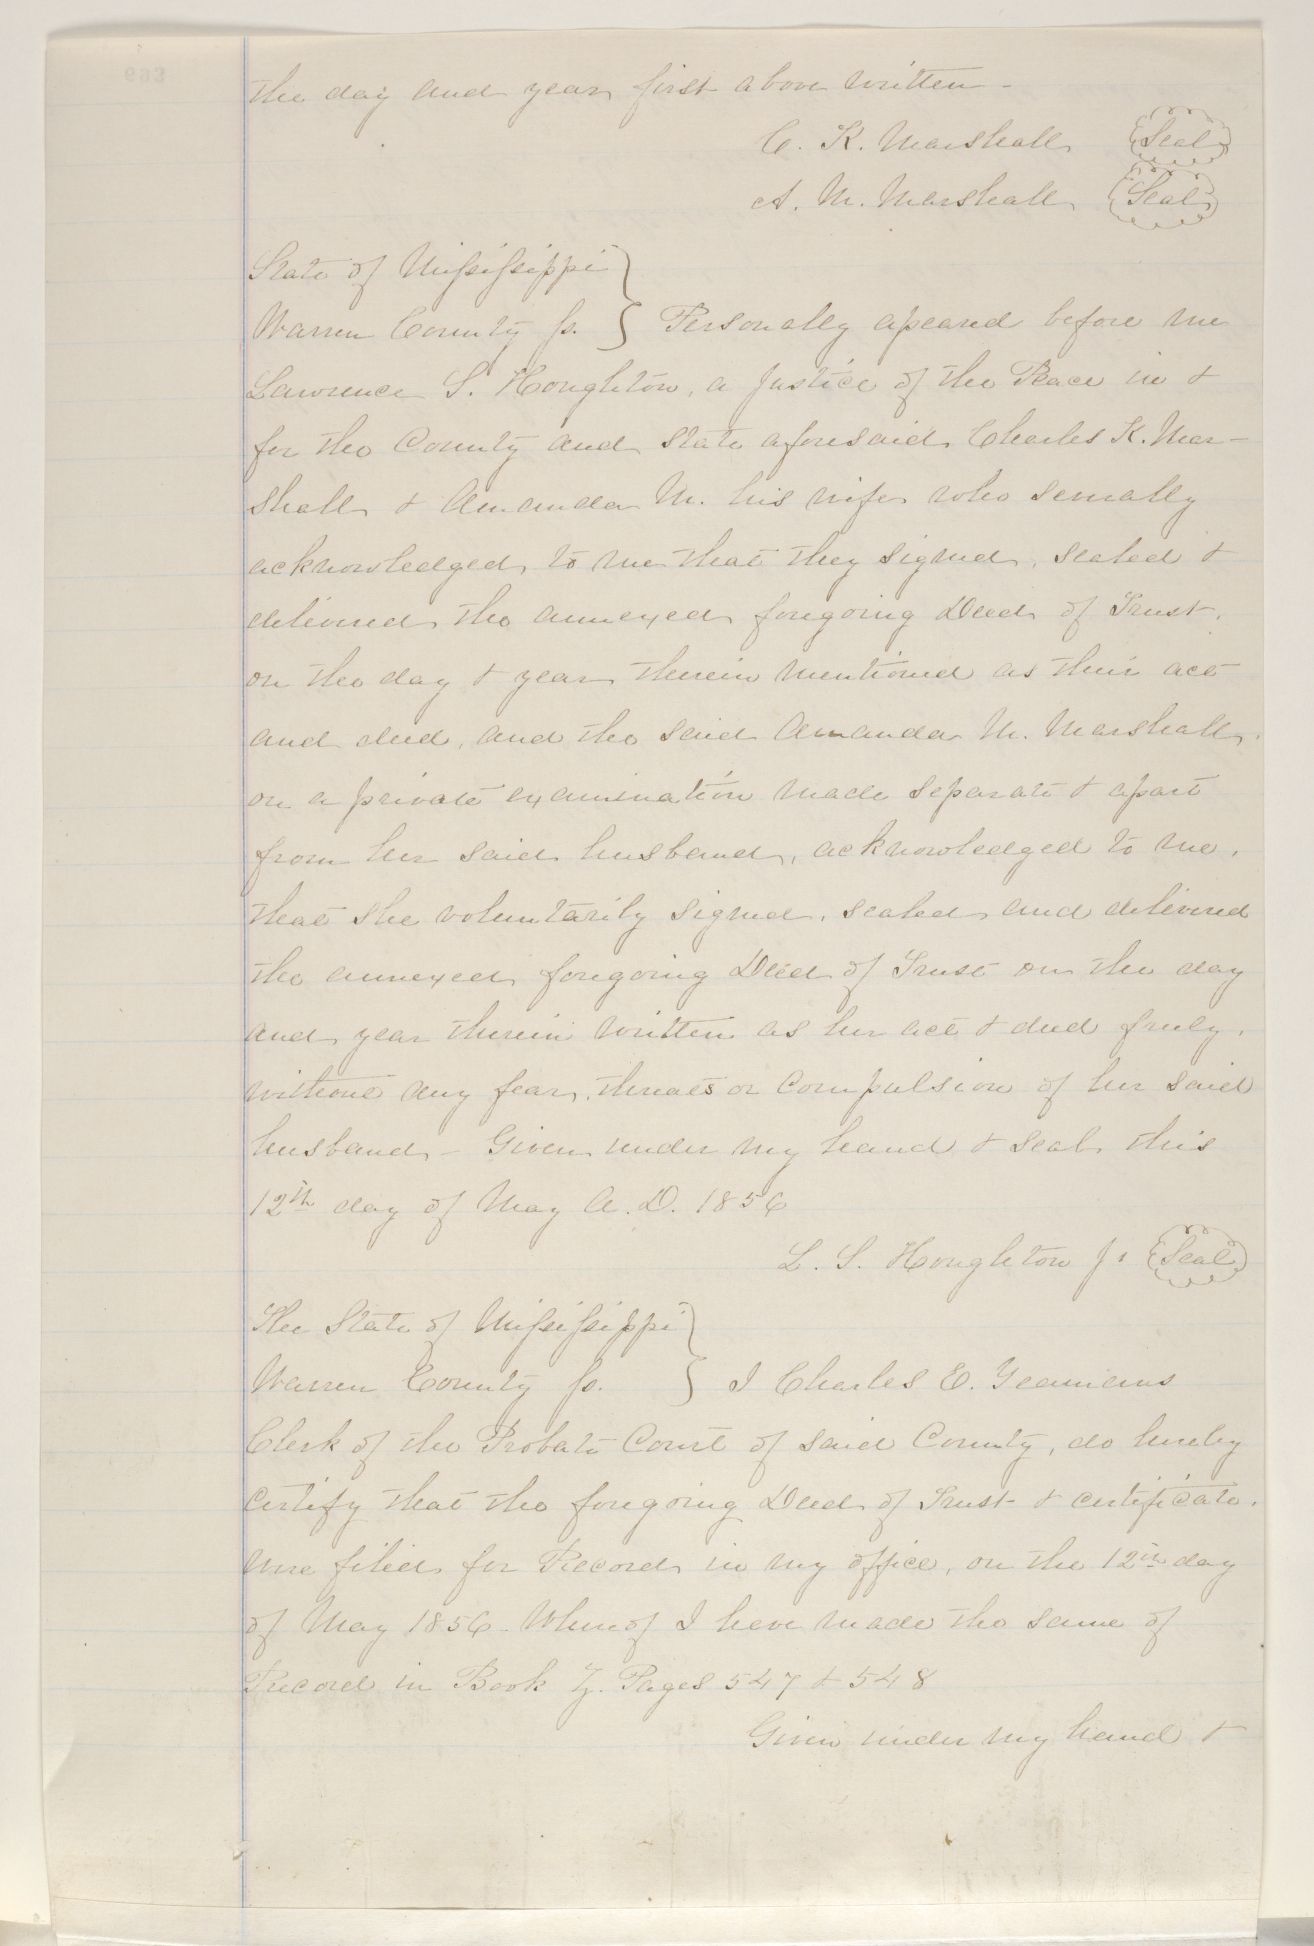 the day and year first above written -
C. K. Marshall Seal
A. M. Marshall Seal
State of Mississippi
Warren County ss. Personally apeared before me
Lawrence S. Houghton, a Justice of the Peace in &
for the County and State aforesaid Charles K. Mar-
shall & Amanda M. his wife who severally
acknowledged to me that they signed, sealed &
delivered the annexed foregoing Deed of Trust,
on the day & year therein mentioned as their act
and deed, and the said Amanda M. Marshall,
on a private examination made separate & apart
from her said husband, acknowledged to me,
that she voluntarily signed, sealed and delivered
the annexed foregoing Deed of Trust on the day
and year therein written as her act & deed freely,
without any fear, threats or Compulsion of her said
husband - Given under my hand & seal this
12th day of May A. D. 1856
L. S. Houghton J. Seal
The State of Mississippi
Warren County ss. I Charles E. Yeamans
Clerk of the Probate Court of said County, do hereby
certify that the foregoing Deed of Trust & certificate,
were filed for Record in my office, on the 12th day
of May 1856. Whereof I have made the same of
Record in Book Z. Pages 547 & 548
Given under my hand &